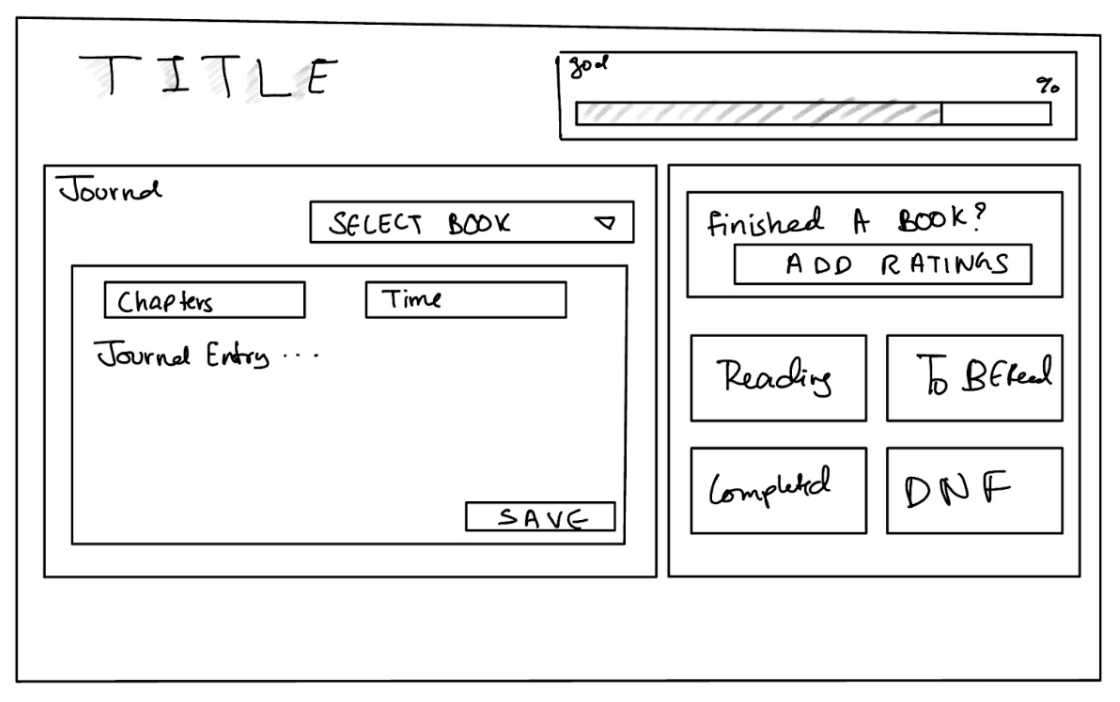 TITLE
goal
%
Journal
SELECT BOOK
Chapters
Time
Journal Entry ...
SAVE
finished A BOOK?
ADD RATINGS
Reading
To BERead
Completed
DNF